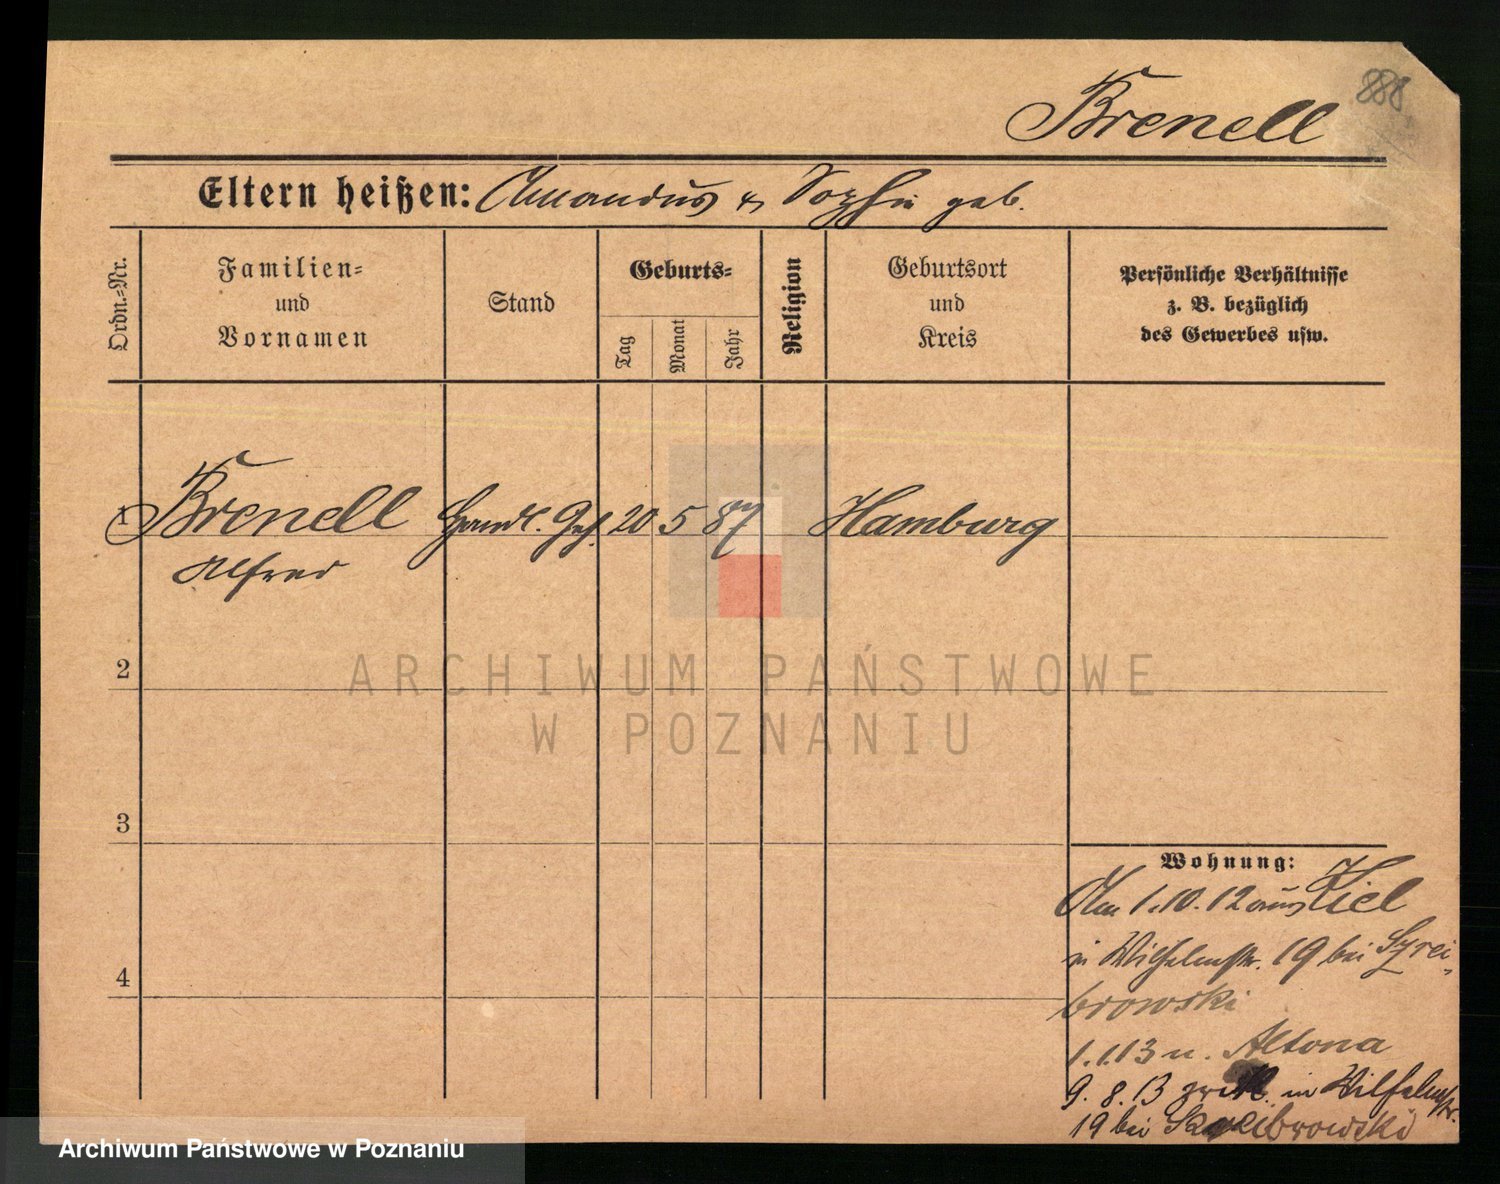 Brenell
Eltern heißen: Amandus & Sophie geb.
Ordn.=Nr.
Familien=
und
Vornamen
Stand
Geburts=
Tag
Monat
Jahr
Religion
Geburtsort
und
Kreis
Persönliche Verhältnisse
z. B. bezüglich
des Gewerbes usw.
1 Brenell Handl. Geh. 20 5 87 Hamburg
Alfred
2
ARCHIWUM PAŃSTWOWE
W POZNANIU
3
Wohnung:
Am 1.10.12 aus Kiel
in Wilhelmstr. 19 bei Szrei-
4
browski
1.1.13 n. Altona
9.8.13 zurück in Wilhelmstr.
19 bei
Archiwum Państwowe w Poznaniu